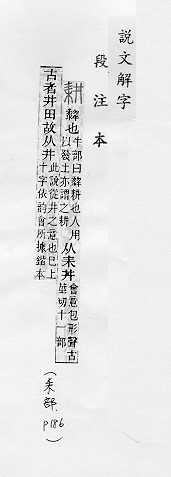 說文解字
段注本
耕 犂也牛部曰犂耕也人用以發土亦謂之耕从耒井會意包形聲古莖切十一部
古者井田故从井此說從井之意也巳上十字依韵會所據鍇本
(耒部. p186)